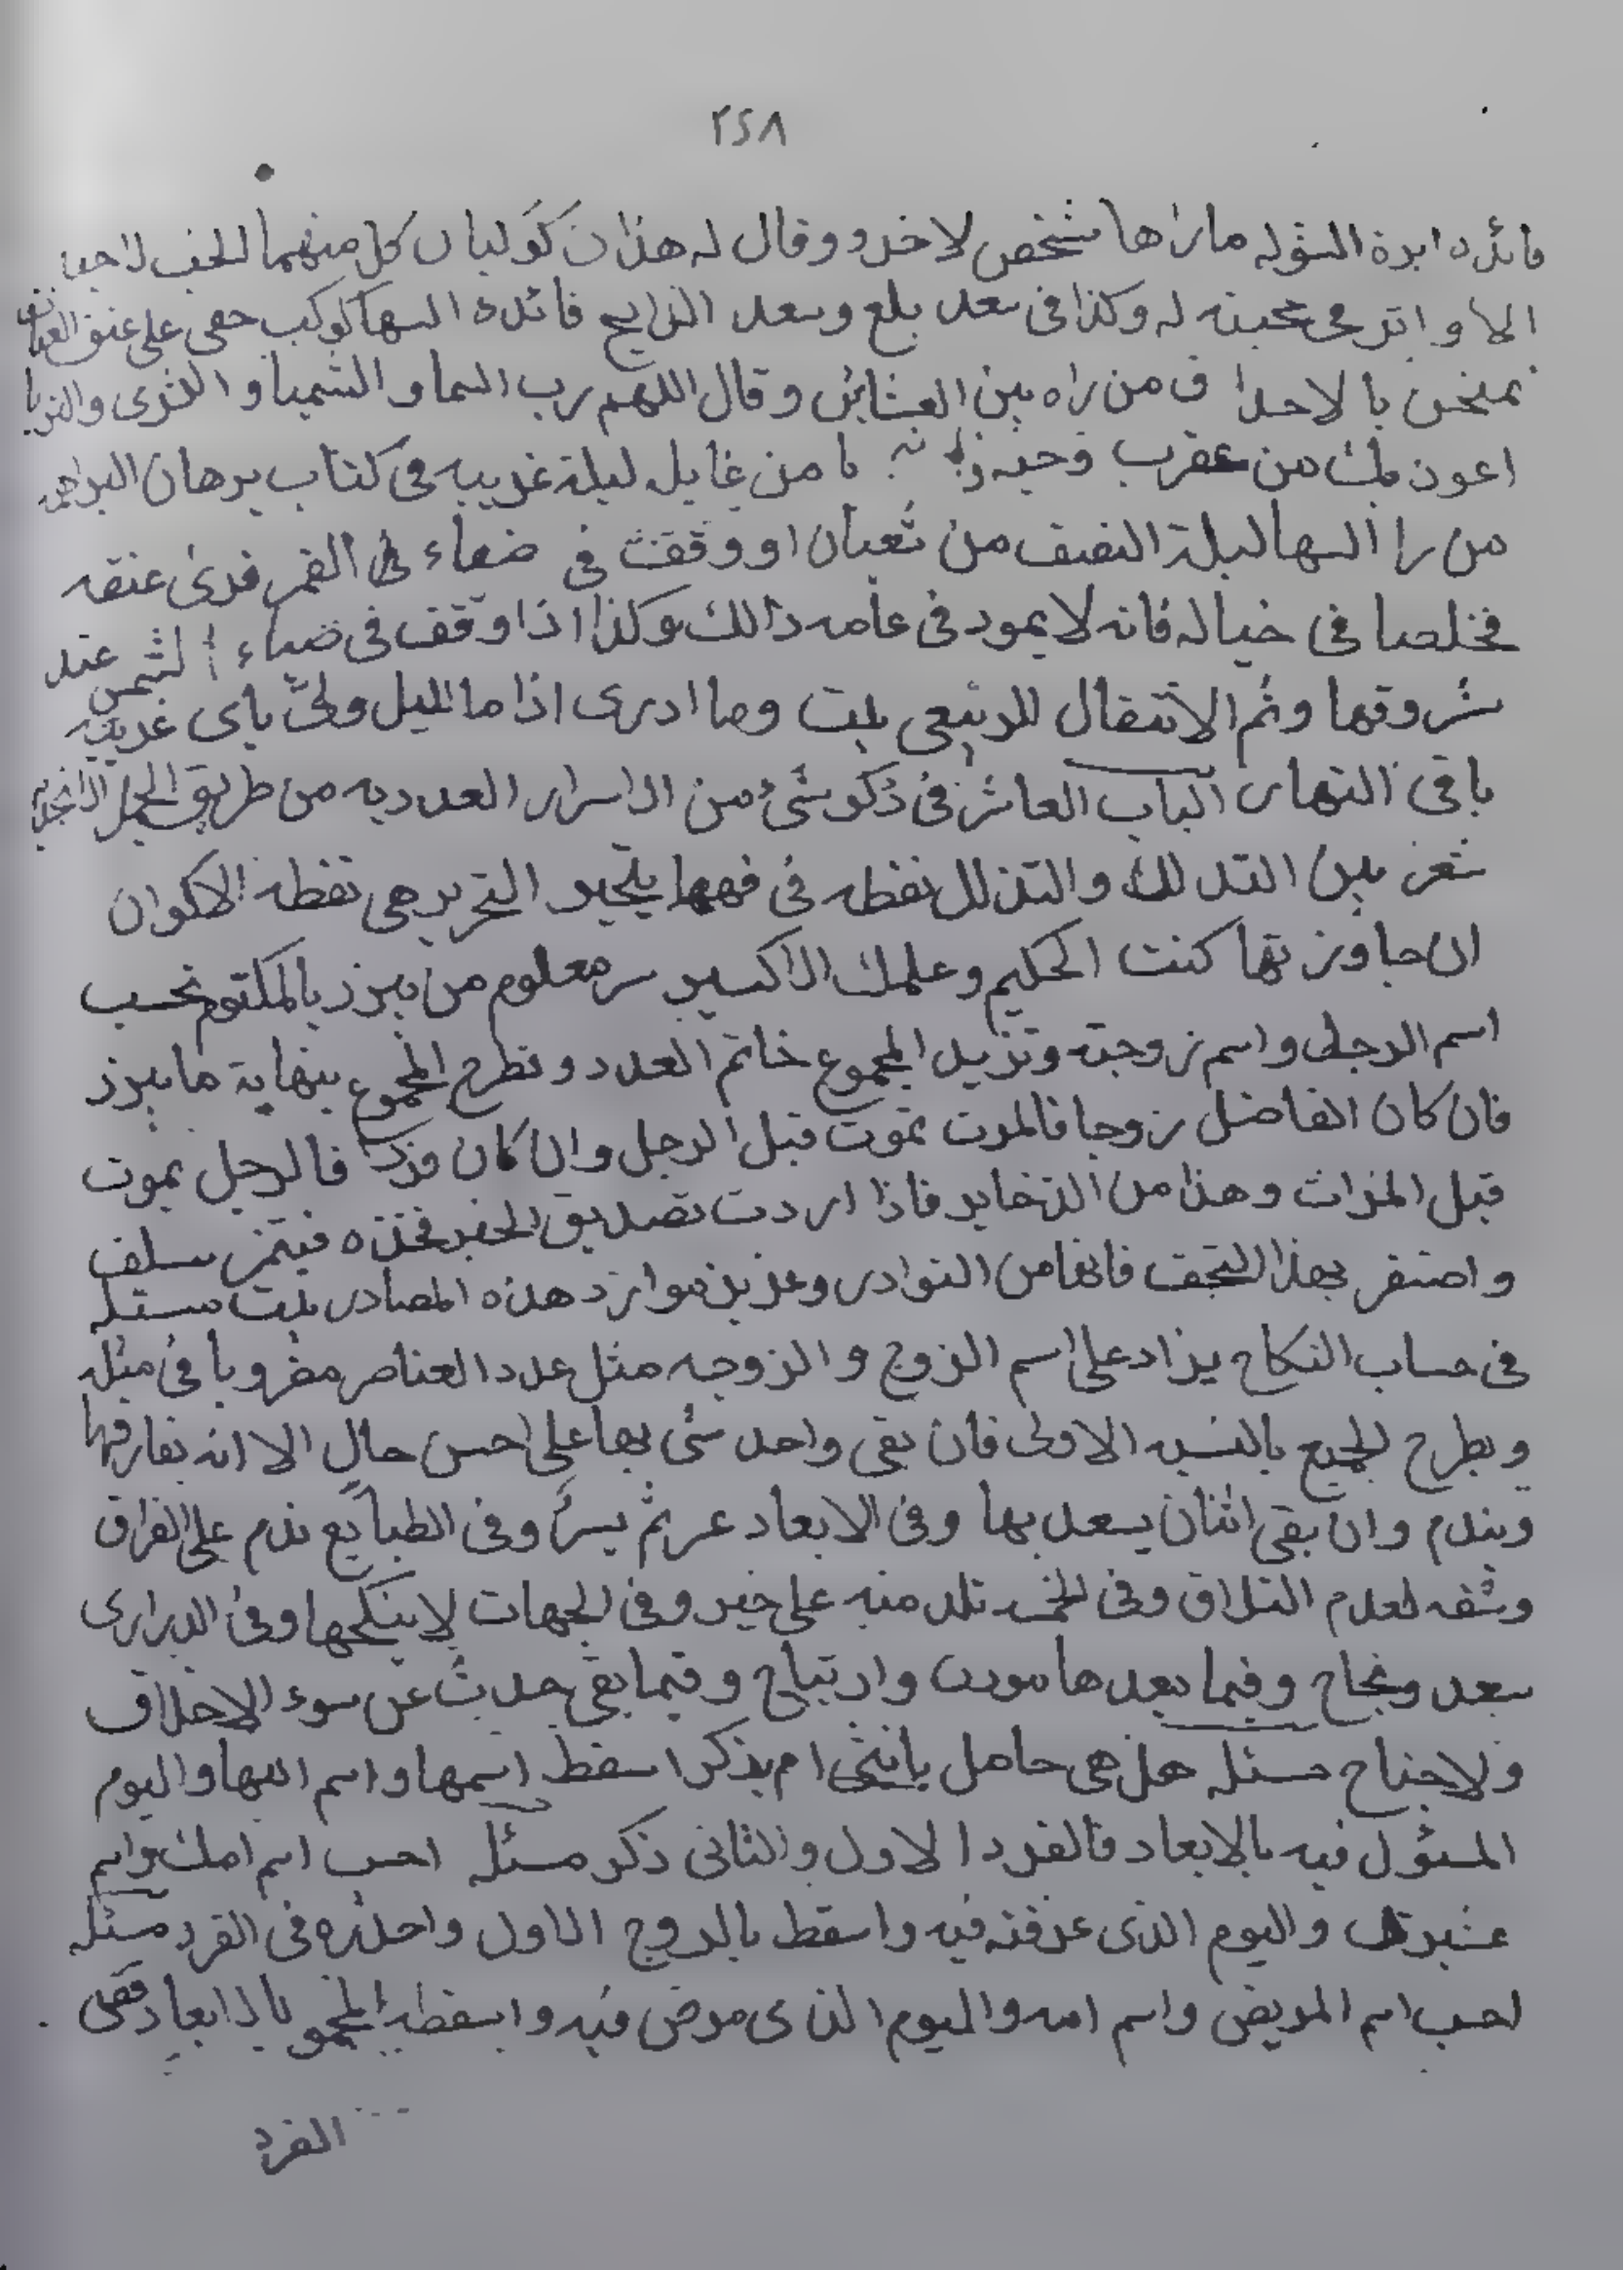 ٢٤٨
فائده ابرة الشوله ماراها شخص لاخر وقال له هذان كوكبان كل منهما للخب لاحبا
الا و محبته له وكذا فى سعد بلع وسعد الذابح فائده السها كوكب خفى على عنق
يمتحن به من راه بين العشائين وقال اللهم رب السما و والثرى والثريا
اعوذ بك من عقرب وحيه من ليلة غريبه فى كتاب برهان
من را السها ليلة النصف من شعبان او وقفت فى ضياء القمر فرى عنقه
فى خياله فانه لا يمود فى عامه ذالك وكذا اذا وقف فى ضياء الشمس عند
شروقها وثم الانتقال للربيعى بيت وما ادرى اذا ما الليل ولى باى غريبه
ياتى النهار الباب العاشر فى ذكر شئ من الاسرار العدديه من طريق
شعر بين التدلك والتذلل نقطه فى فهمها يتحير التحرير هى نقطه الاكوان
ان جاوزتها كنت الحكيم وعلمك الاكسير سر معلوم من يبرز بالمكتوم تحسب
اسم الرجل واسم زوجته وتزيد المجموع خاتم العدد وتطرح المجموع بنهاية ما يبرز
فان كان الفاضل زوجا فالمرت تموت قبل الرجل وان كان فرد فالرجل يموت
قبل المرات وهذا من الذخاير فاذا اردت تصديق الخبر فخذه سلف
بهذا فانها من النوادر وعزيز موارد هذه المصادر بيت مسئله
فى حساب النكاح يزاد على اسم الزوج و الزوجه مثل عدد العناصر مضروبا فى مثله
ويطرح الجميع بالنسبه الاولى فان بقى واحد شى بها على احسن حال الا انه يفارقها
ويندم وان بقى اثنان يسعد بها وفى الابعاد عر ثم يسرا وفى الطبايع ندم على الفراق
وشقه لعدم التلاق وفى الخمسه تلد منه على خير وفى الجهات لاينكحها وفى الدرارى
سعد ونجاح وفيما بعدها مودت وارتياح وفيما بقى حديث عن سوء الاخلاق
ولا جناح مسئله هل هى حامل بانثى ام بذكر اسقط اسمها واسم امها واليوم
المسئول فيه بالابعاد فالفرد الاول والثانى ذكر مسئله احسب اسم امك واسم
واليوم الذى عرفته فيه واسقط بالزوج الاول واحذره فى الفرد مسئله
احسب اسم المريض واسم امه واليوم الذى مرض فيه واسقط المجموع بالابعاد ففى
الفرد